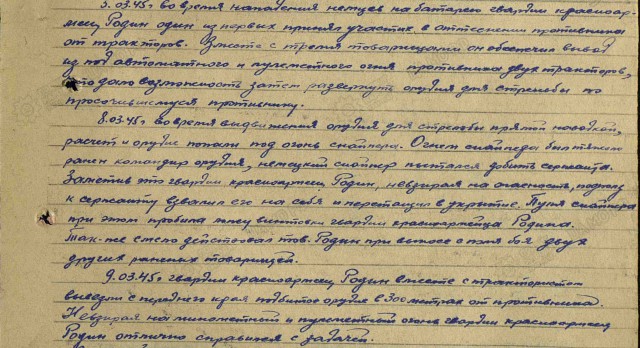 5.03.45г во время нападения немцев на батарею гвардии красноар-
меец Родин один из первых принял участие в оттеснении противника
от тракторов. Вместе с тремя товарищами он обеспечил вывод
из под автоматного и пулеметного огня противника двух тракторов,
что дало возможность затем развернуть орудия для стрельбы по
просочившемуся противнику.
8.03.45г во время выдвижения орудия для стрельбы прямой наводкой,
расчет и орудие попали под огонь снайпера. Огнем снайпера был тяжело
ранен командир орудия, немецкий снайпер пытался добить сержанта.
Заметив это гвардии красноармеец Родин, невзирая на опасность, подполз
к сержанту взвалил его на себя и перетащил в укрытие. Пуля снайпера
при этом пробила ложу винтовки гвардии красноармейца Родина.
Так-же смело действовал тов. Родин при выносе с поля боя двух
других раненых товарищей.
9.03.45г гвардии красноармеец Родин вместе с трактористом
вывезли с переднего края подбитое орудие в 300 метрах от противника.
Невзирая на минометный и пулеметный огонь гвардии красноармеец
Родин отлично справился с задачей.